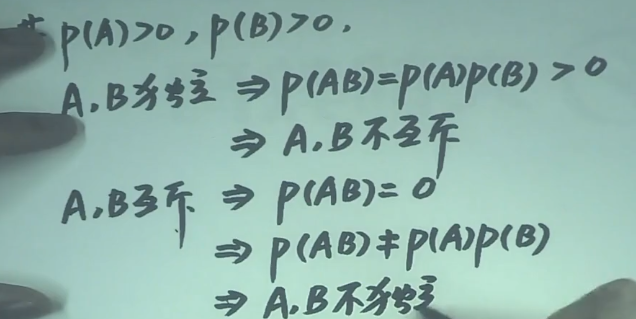 P(A)>0, P(B)>0.
A,B独立 ⇒ P(AB)=P(A)P(B) > 0
⇒ A,B不互斥
A,B互斥 ⇒ P(AB)=0
⇒ P(AB)≠P(A)P(B)
⇒ A,B不独立